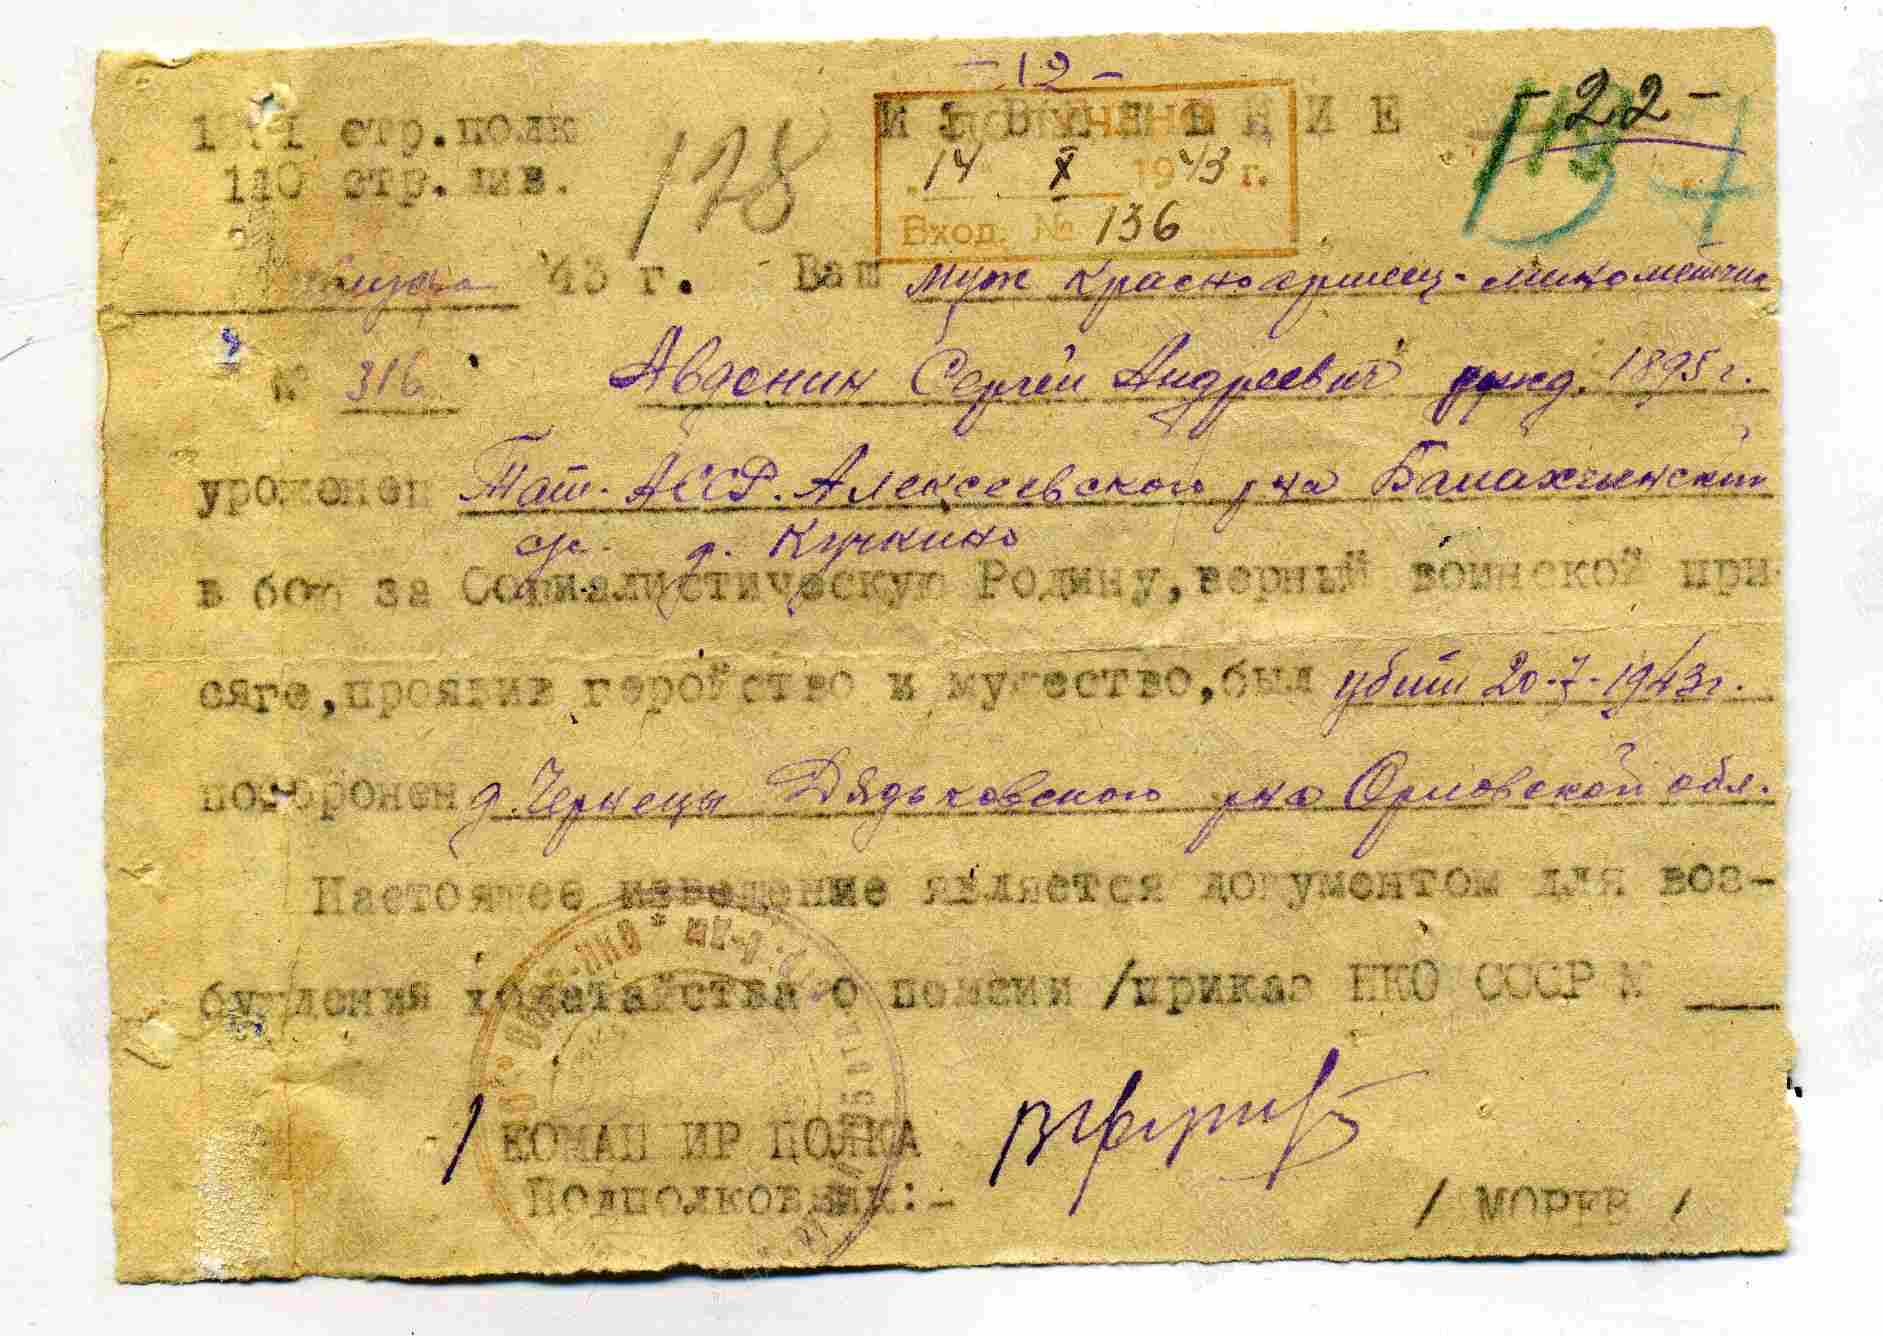 - 12 -
ИЗВЕЩЕНИЕ
- 22 -
стр. полк
110 стр. див.
178
14 X 1943 г.
Вход. № 136
43 г. Ваш муж красноармеец-минометчик
№ 316 Авдонин Сергей Андреевич рожд. 1895 г.
уроженец Тат. АССР. Алексеевского р-на
с/с. д. Кучкино
в бою за Социалистическую Родину, верный воинской при-
сяге, проявив геройство и мужество, был убит 20-7-1943 г.
похоронен д. Чернецы Дядьковского р-на Орловской обл.
Настоящее извещение является документом для воз-
буждения ходатайства о пенсии /приказ НКО СССР №
КОМАНДИР ПОЛКА
Подполковник:-
/ МОРЕВ /